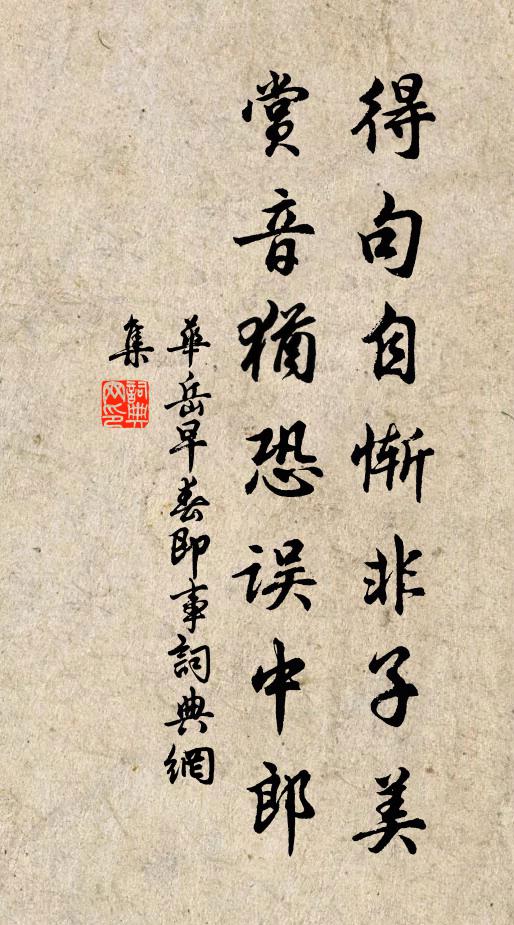 得句自慚非子美
賞音猶恐誤中郎
華岳早春即事詞典網
集
詞典
网印